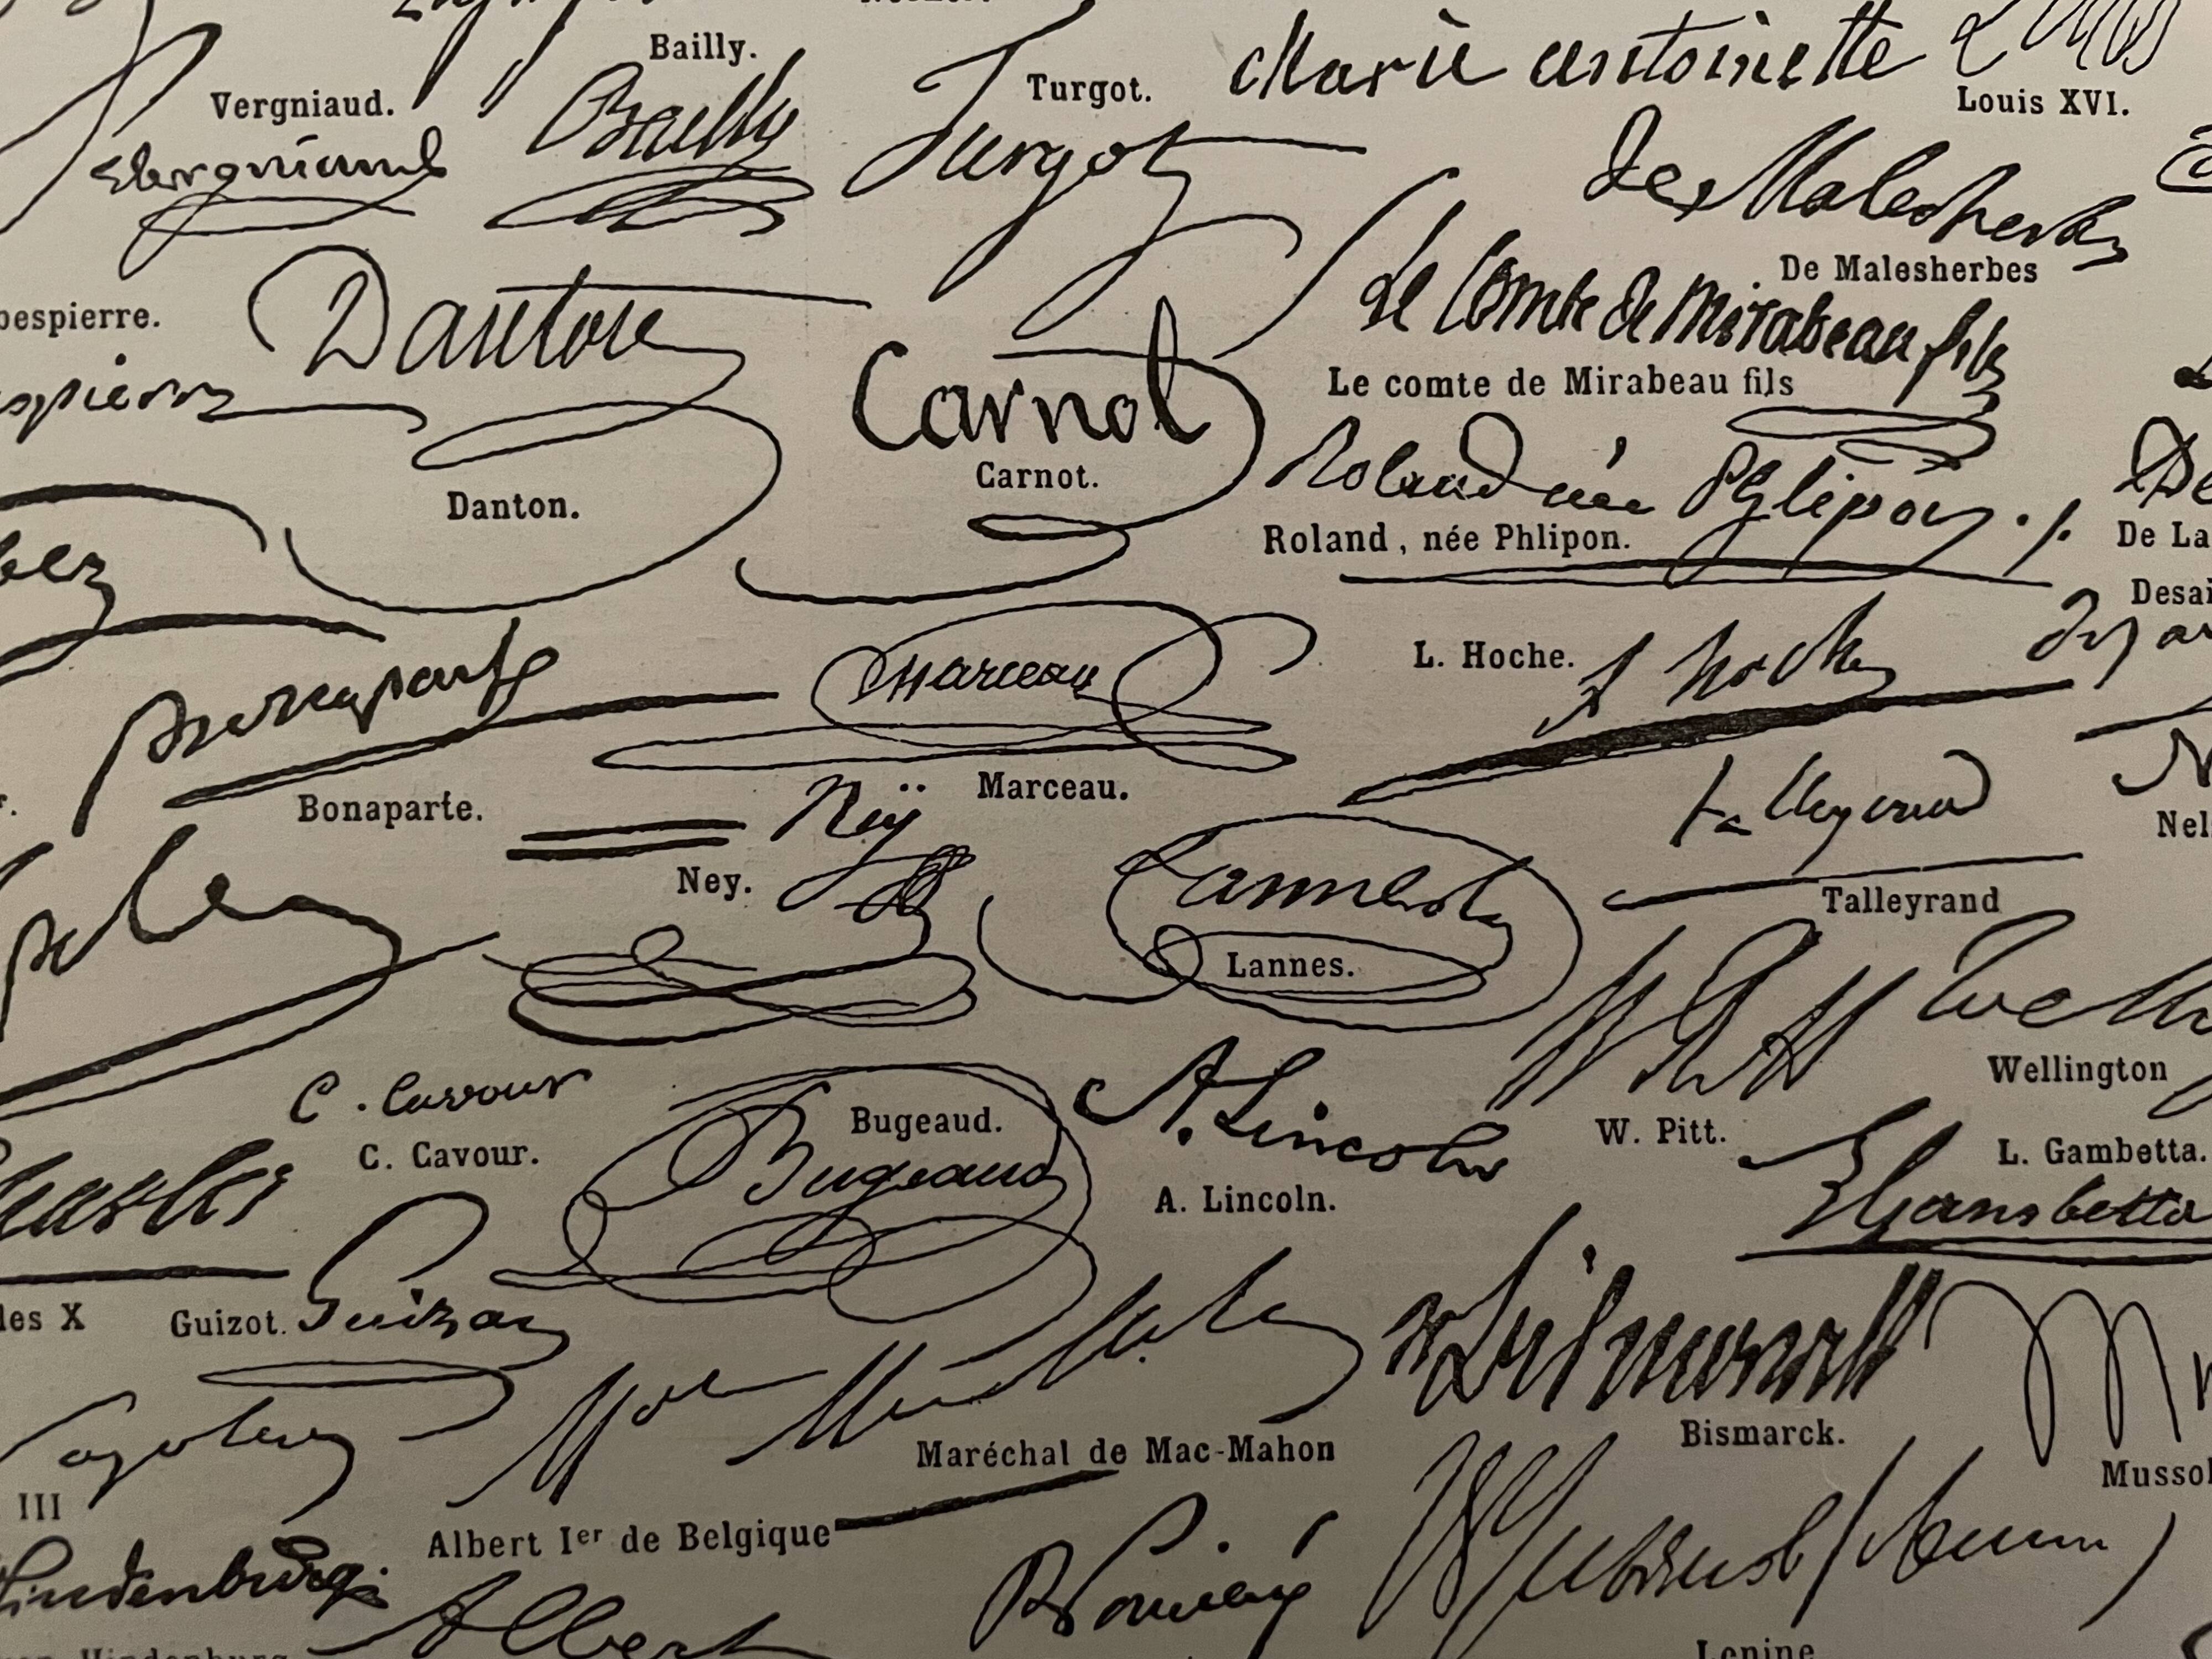 Bailly.
Vergniaud.
Vergniaud
Bailly
Turgot.
Turgot
Marie antoinette
Louis
Louis XVI.
de Malesherbes
De Malesherbes
bespierre.
espierre
Danton
Danton.
Carnot
Carnot.
Le Comte de Mirabeau fils
Le comte de Mirabeau fils
Roland née Phlipon
Roland, née Phlipon.
De
De La
Desai
Bonaparte.
Marceau
Marceau.
L. Hoche.
L Hoche
Neÿ
Ney.
Lannes.
Talleyrand
Talleyrand
N
Nel
W Pitt
W. Pitt.
Well
Wellington
C. Cavour
C. Cavour.
Bugeaud.
Bugeaud
A. Lincoln
A. Lincoln.
L. Gambetta.
L Gambetta
Charles
les X
Guizot.
Guizot
Napoleon
III
Mal
Maréchal de Mac-Mahon
Bismarck.
Mussol
Albert Ier de Belgique
Albert
Hindenburg
Hindenburg
R Poincaré
(Lenin)
Lenine